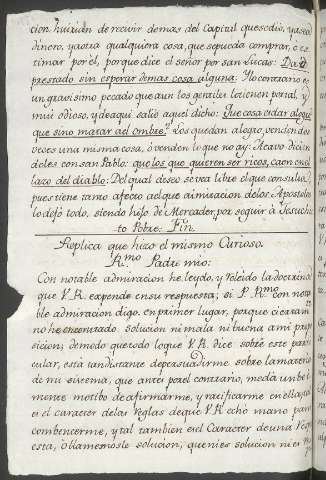 cion huixian de recivir demas del Capital que se dió, ya sea
dinero, ya otra qualquiera cosa, que se pueda comprar, o es
timar por el, porque dice el señor por san Lucas: Dad
prestado sin esperar demas cosa alguna: Y lo contrario es
un gravisimo pecado que aun los gentiles lo tienen por tal, y
mui odioso, y de aqui salio aquel dicho: Que cosa es dar a logro
que sino matar a el ombre. Los que dan a logro, venden dos
veces una misma cosa, ò venden lo que no ay: Acavo dicien
doles con san Pablo: que los que quieren ser ricos, caen en el
lazo del diablo: Del qual deseo se vea libre el que consulta,
pues tiene tanto afecto al que a imitacion de los Apostoles
lo dejó todo, siendo hijo de Mercader, por seguir à Jesuchris
to Pobre. Fin.
Replica que hizo el mismo Curioso.
R.mo Padre mio:
Con notable admiracion he leydo, y releido la doctrina
que V. R. expende en su respuesta; si P. R.mo con nota
ble admiracion digo. en primer lugar, porque ci caram
no he encontrado solucion ni mala ni buena a mi propo
sicion; de modo que todo lo que V. R. dice sobre este parti
cular, esta tan distante de persuadirme sobre la materia
de mi sistema, que antes por el contrario, me da un be
mente motibo de afirmarme, y ratificarme en ella, pues
es el caracter de las reglas de que V. R. echo mano para
combencerme, y tal tambien es el Caracter de una
esta, ò llamemosle solucion, que ni es solucion ni es